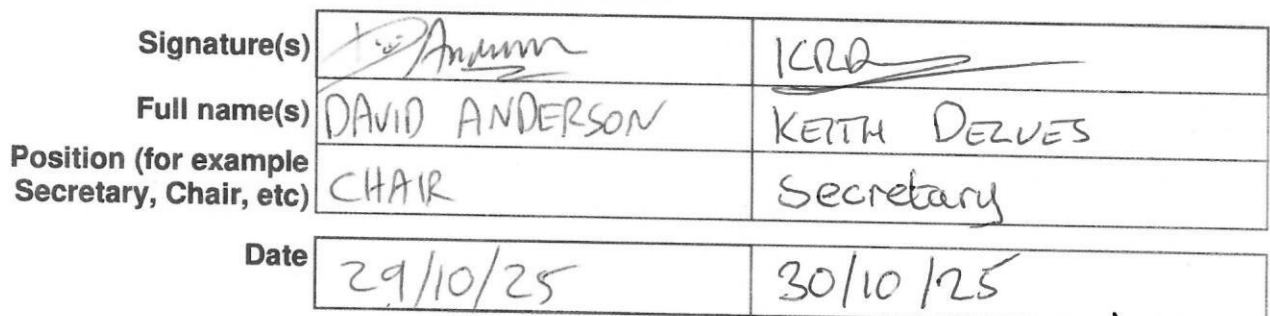 Signature(s) Anderson KRD
Full name(s) DAVID ANDERSON KEITH DELVES
Position (for example
Secretary, Chair, etc) CHAIR Secretary
Date 29/10/25 30/10/25